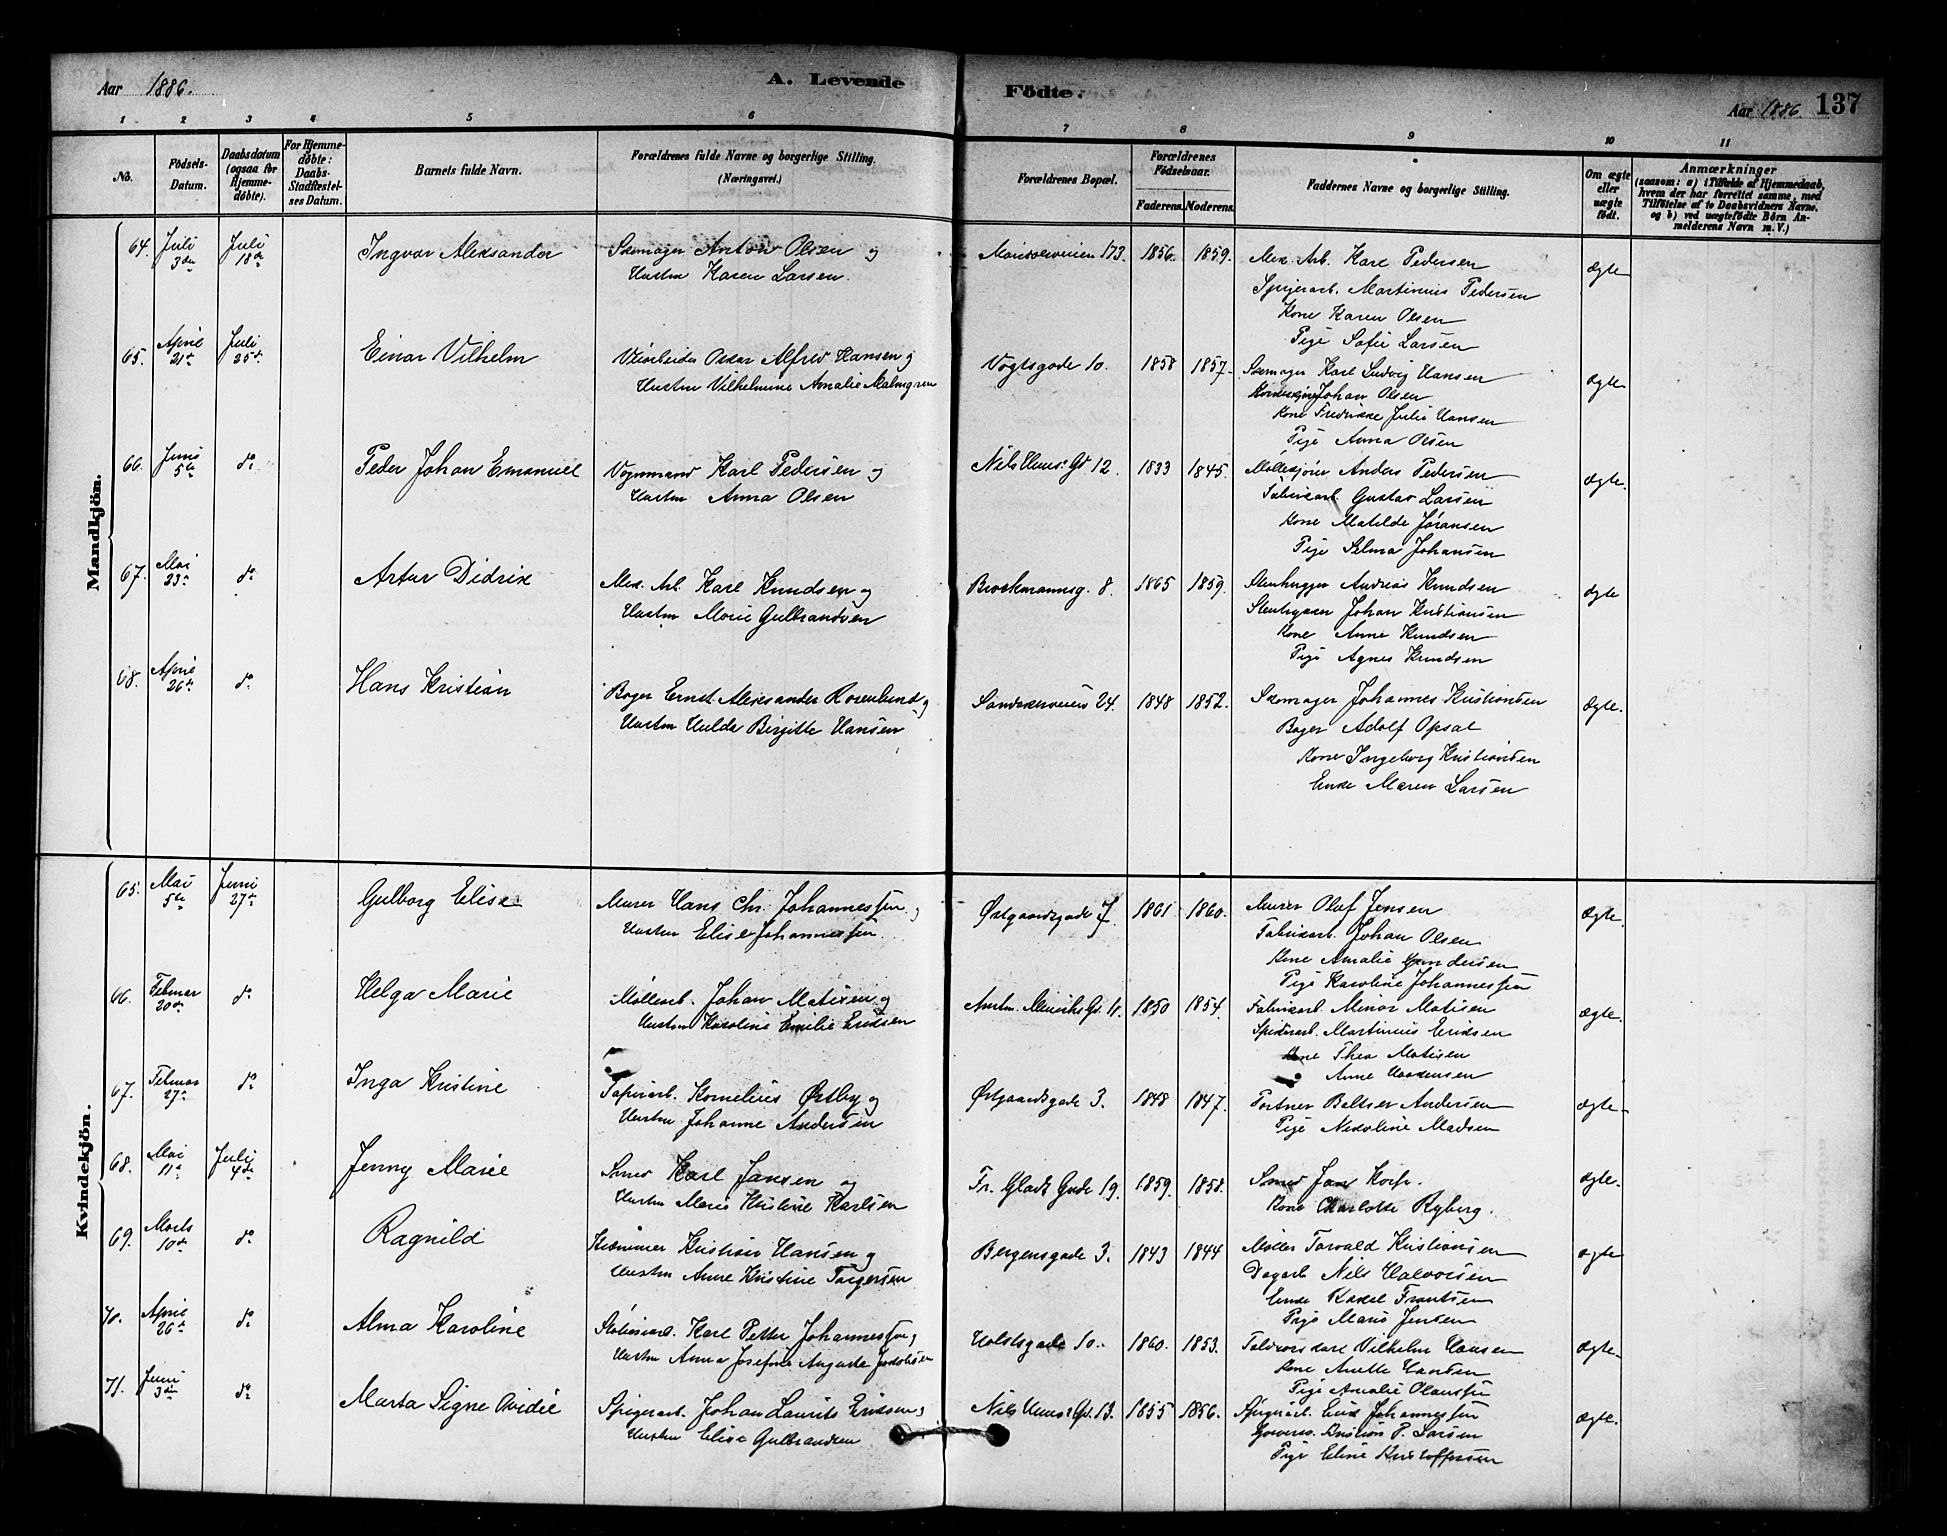 Aar 1886.
A. Levende
Födte.
Aar 1886. 137
1 2 3 4 5 6 7 8 9 10 11
No.
Födsels-
Datum.
Daabsdatum
(ogsaa for
Hjemme-
döbte).
For Hjemme-
döbte:
Daabs-
Stadfæstel-
ses Datum.
Barnets fulde Navn.
Forældrenes fulde Navne og borgerlige Stilling.
(Næringsvei.)
Forældrenes Bopæl.
Forældrenes
Födselsaar.
Faderens. Moderens.
Faddernes Navne og borgerlige Stilling.
Om ægte
eller
uægte
født.
Anmærkninger
(saasom: a) i Tilfælde af Hjemmedaab,
hvem der har forrettet samme, med
Tilföielse af to Daabsvidners Navne,
og b) ved uægtefödte Börn An-
melderens Navn m. V.)
Mandkjön.
64. Juli 3die Juli 18de Ingvar Aleksander Skomager Anton Olsen og 1856. 1859. Mek. Arb. Karl Pedersen ægte
Hustru Karen Larsen.
Spigerarb. Martinius Pedersen
Kone Karen Olsen
Pige Sofie Larsen
65. April 21de Juli 25de Einar Vilhelm Oskar Alfred Hansen og Vogtsgade 10. 1858 1857. Skomager Karl Ludvig Hansen ægte
Hustru Vilhelmine Amalie Malmgren
Johan Olsen
Kone Fredrikke Julie Hansen
Pige Anna Olsen
66. Juni 5te do Peder Johan Emanuel Vognmand Karl Pedersen og 12. 1833 1845. Møllekjører Anders Pedersen ægte.
Hustru Anna Olsen
Fabrikarb. Gustav Larsen
Kone Matilde Jøransen
Pige Selma Johansen
67. Mai 23de do Artur Didrik Mek. Arb. Karl Knudsen og Brochmannsg. 8. 1865 1859. Stenhugger Andreas Knudsen ægte
Hustru Marie Gulbrandsen
Stenhugger Johan Kristiansen
Kone Anne Knudsen
Pige Agnes Knudsen
68. April 26de do Hans Kristian Bager Ernst Aleksander Rosenlund og Sandakerveien 24. 1848 1852. Skomager Johannes Kristiansen ægte.
Hustru Hulda Birgitte Hansen
Bager Adolf Opsal
Kone Ingeborg Kristiansen
Enke Maren Larsen
Kvindekjön.
65. Mai 5te Juni 27de Gulborg Elise Murer Hans Chr. Johannessen og Østgaardsgade 7. 1861 1860. Murer Olaf Jensen ægte.
Hustru Elise Johannessen.
Fabrikarb. Johan Olsen
Kone Amalie Gundersen
Pige Karoline Johannessen
66. Februar 20de do Helga Marie Møllearb. Johan Matisen og 11. 1850 1854. Fabrikarb. Minor Matisen ægte.
Hustru Karoline Emilie Eriksen
Martinius Eriksen
Kone Thea Matisen
Anne
67. Februar 27de do Inga Kristine Papirarb. Kornelius Østby og Østgaardsgade 3. 1848 1847. Portner Baltser Andersen ægte
Hustru Johanne Andersen
Pige Nikoline Madsen
68. Mai 11te Juli 4de Jenny Marie Smed Karl Jansen og Fr. Glads Gade 19. 1859. 1858. Smed Jan Korp. ægte.
Hustru Marie Kristine Karlsen
Kone Charlotte Ryberg.
69. Marts 10de do Ragnild Kristian Hansen og Bergensgade 3. 1843 1844 Møller Torvald Kristiansen ægte
Hustru Anne Kristine Torgersen
Dagarb. Nils Halvorsen
Enke Rakel Frantsen
Pige Marie Jensen
70. April 26de do Alma Karoline Karl Petter Johannessen og Holstsgade 10. 1860. 1853. Vilhelm Hansen ægte
Hustru Anna Josefine Augusta Jakobsen
Kone Anette Hansen
Pige Amalie Olaussen
71. Juni 3die do Marta Signe Ovidie Spigerarb. Johan Laurits Eriksen og 13. 1855 1856. Spigerarb. Erik Johannessen ægte.
Hustru Elise Gulbrandsen
Kristian P. Larsen
Pige Eline Kristoffersen